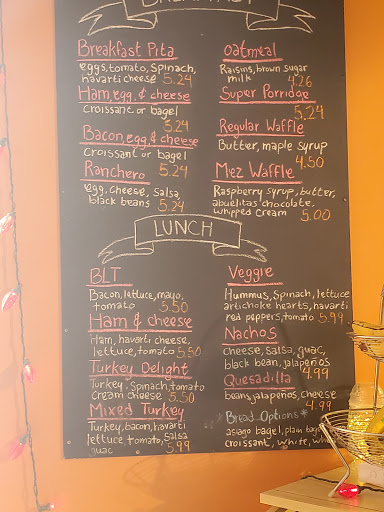 BREAKFAST
Breakfast Pita
eggs, tomato, spinach,
havarti cheese 5.24
Ham, egg, & cheese
croissant or bagel
5.24
Bacon, egg, & cheese
croissant or bagel
Ranchero 5.24
egg, cheese, salsa,
black beans 5.24
oatmeal
Raisins, brown sugar
milk 4.26
Super Porridge
5.24
Regular Waffle
Butter, maple syrup
4.50
Mez Waffle
Raspberry syrup, butter,
abuelitas chocolate,
whipped cream 5.00
LUNCH
BLT
Bacon, lettuce, mayo,
tomato 5.50
Ham & cheese
Ham, havarti cheese,
lettuce, tomato 5.50
Turkey Delight
Turkey, spinach, tomato
cream cheese 5.50
Mixed Turkey
Turkey, bacon, havarti
lettuce tomato, salsa
guac 5.99
Veggie
Hummus, spinach, lettuce
artichoke hearts, havarti
red peppers, tomato 5.99
Nachos
cheese, salsa, guac,
black bean, jalapeños
4.99
Quesadilla
beans, jalapeños, cheese
4.99
*Bread Options*
asiago bagel, plain
croissant, white, wh